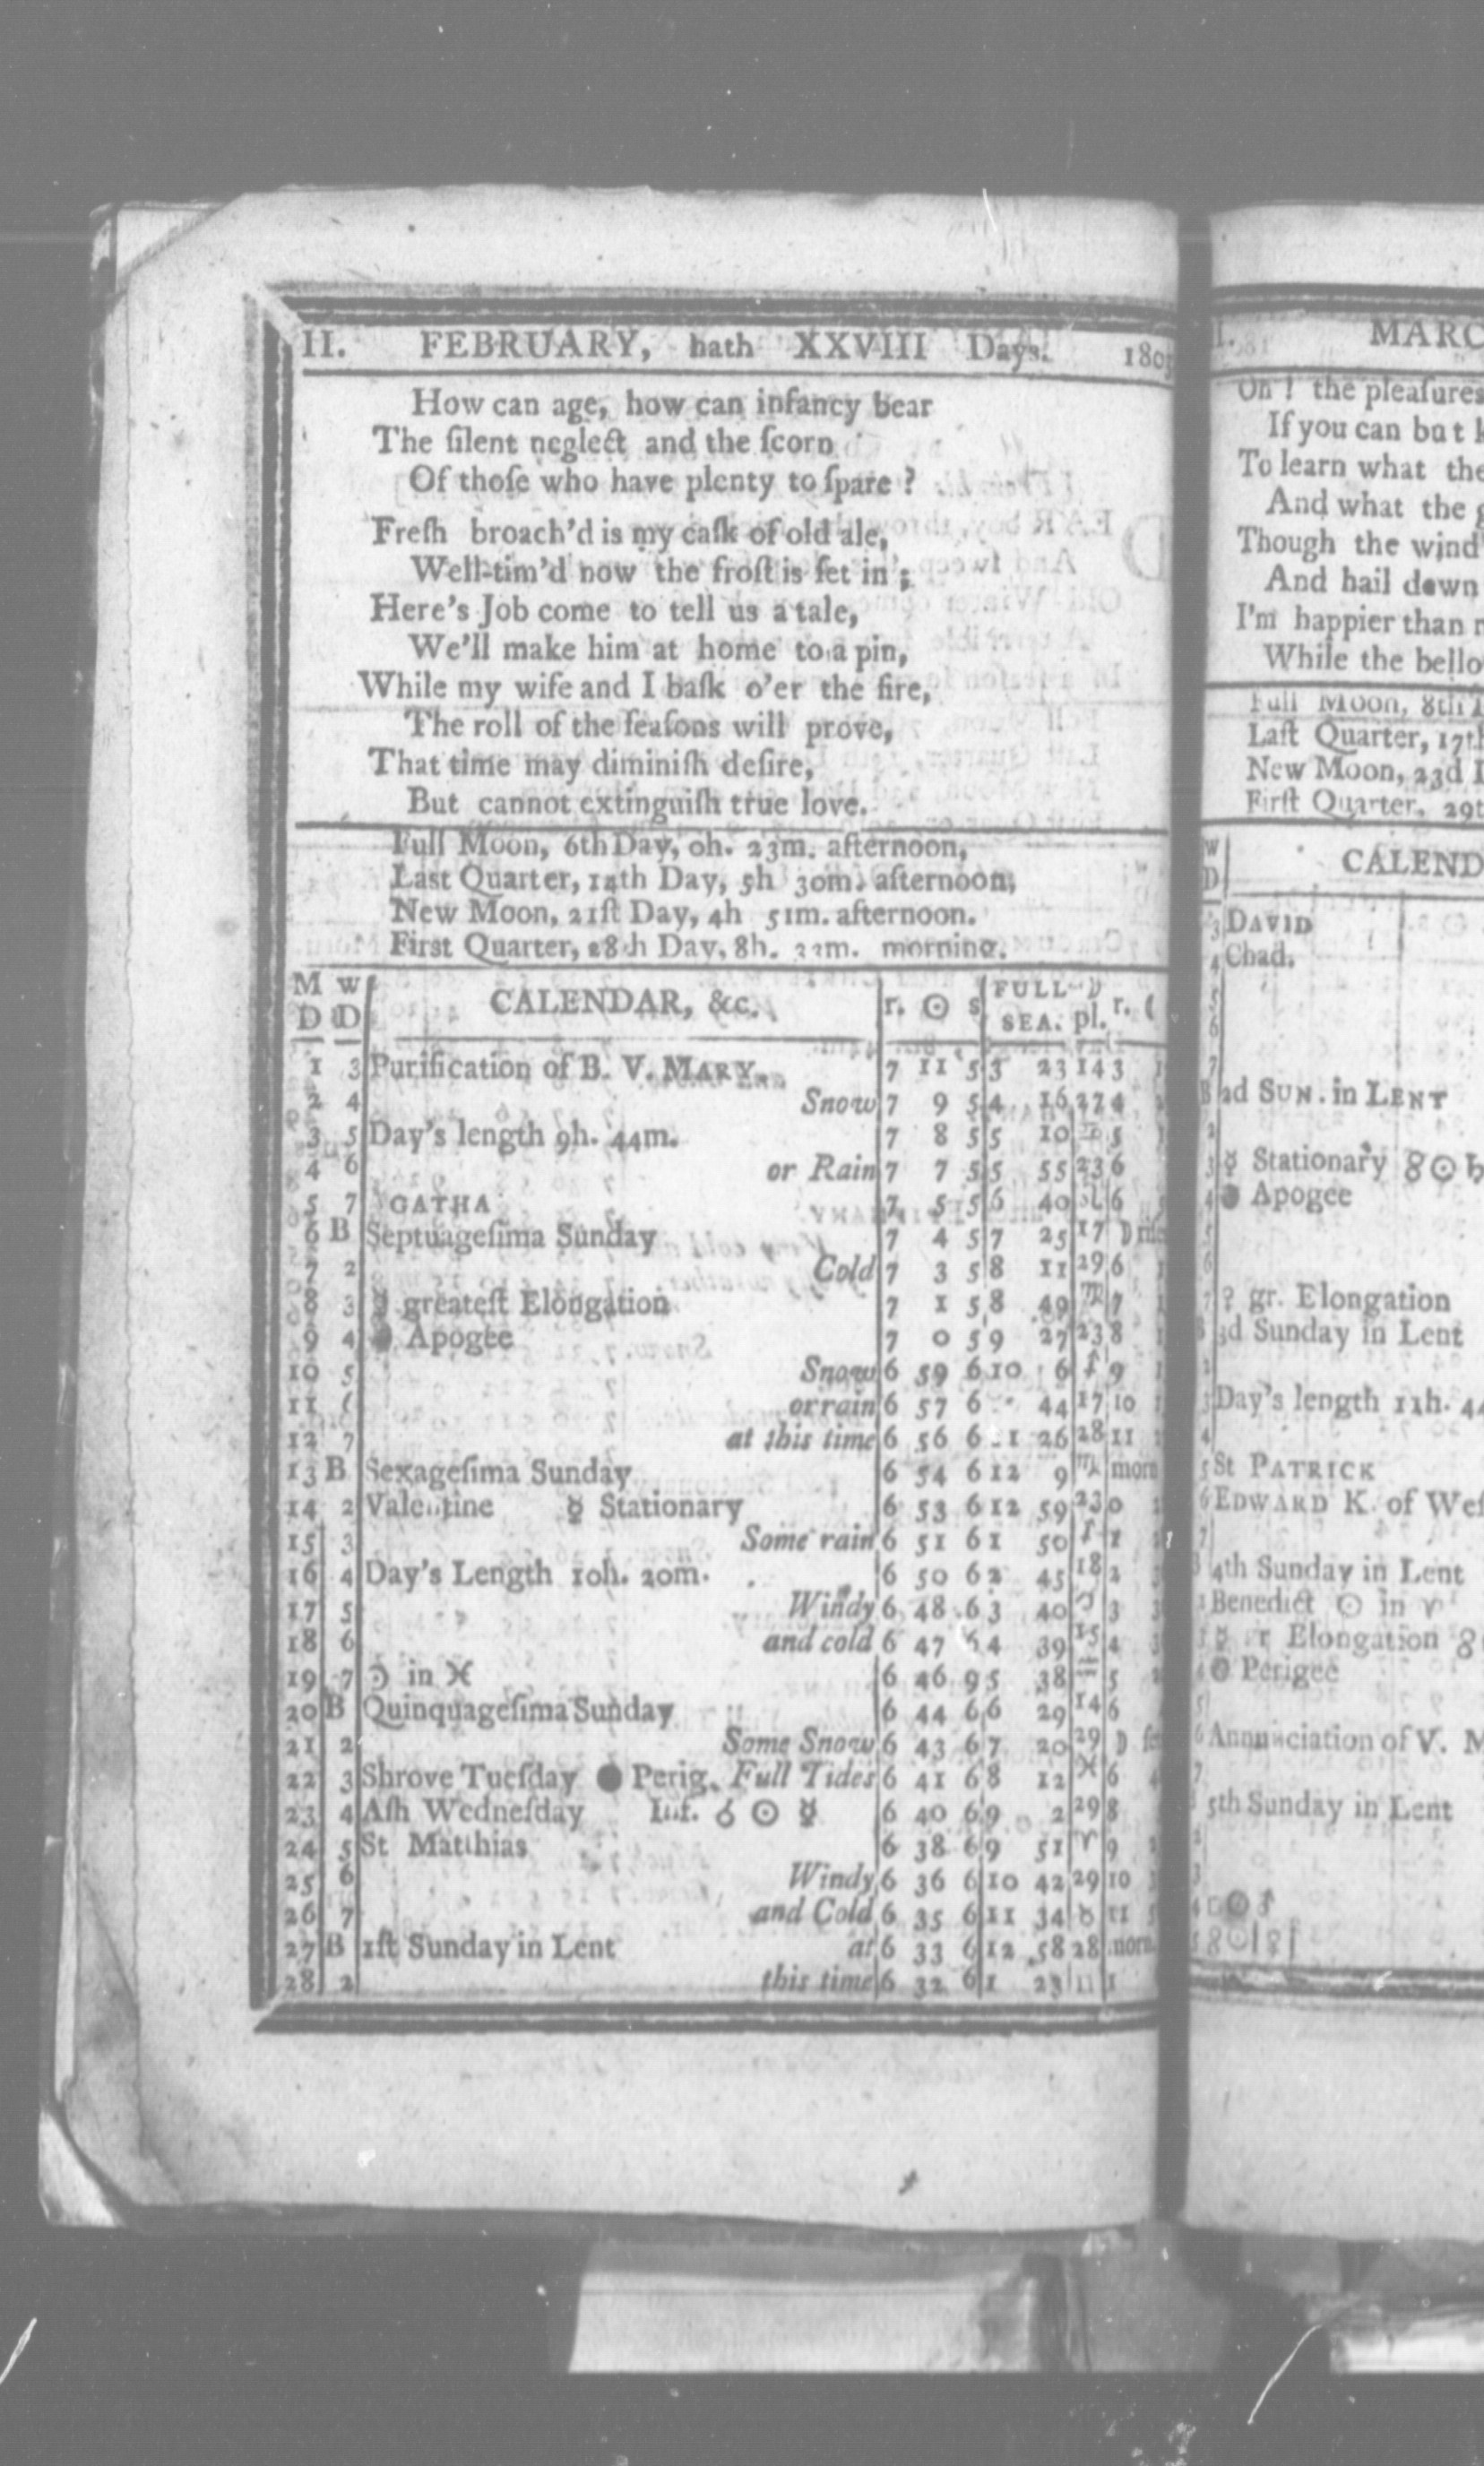 II. FEBRUARY, hath XXVIII Days.
How can age, how can infancy bear
The ſilent neglect and the ſcorn
Of thoſe who have plenty to ſpare ?
Freſh broach'd is my caſk of old ale,
Well-tim'd now the froſt is ſet in ;
Here's Job come to tell us a tale,
We'll make him at home to a pin,
While my wife and I baſk o'er the fire,
The roll of the ſeaſons will prove,
That time may diminiſh deſire,
But cannot extinguiſh true love.
Full Moon, 6th Day, 0h. 23m. afternoon,
Last Quarter, 14th Day, 5h 30m. afternoon,
New Moon, 21ſt Day, 4h 51m. afternoon.
First Quarter, 28th Day, 8h. morning.
M W FULL D
D D CALENDAR, &c. r. ☉ s SEA. pl. r.
1 3 Purification of B. V. MARY. 7 11 5 3 23 14 3
2 4 Snow 7 9 5 4 16 27 4
3 5 Day's length 9h. 44m. 7 8 5 5 10 5
4 6 or Rain 7 7 5 5 55 23 6
5 7 GATHA 7 5 5 6 40 ♌ 6
6 B Septuageſima Sunday 7 4 5 7 25 17 ☽
7 2 Cold 7 3 5 8 11 29 6
8 3 ☿ greateſt Elongation 7 1 5 8 49 ♍ 7
9 4 Apogee 7 0 5 9 27 23 8
10 5 Snow 6 59 6 10 6 9
11 or rain 6 57 6 44 17 10
12 7 at this time 6 56 6 26 28 11
13 B Sexageſima Sunday 6 54 6 12 9 ♏ morn
14 2 Valentine ☿ Stationary 6 53 6 12 59 23 0
15 3 Some rain 6 51 6 1 50 1
16 4 Day's Length 10h. 20m. 6 50 6 2 45 18 2
17 5 Windy 6 48 6 3 40 3
18 6 and cold 6 47 6 4 39 15 4
19 7 in ♓ 6 46 9 5 38 ♒ 5
20 B Quinquageſima Sunday 6 44 6 6 29 14 6
21 2 Some Snow 6 43 6 7 20 29 ☽
22 3 Shrove Tueſday ● Perig. Full Tides 6 41 6 8 12 ♓ 6
23 4 Aſh Wedneſday Inf. ☌ ☉ ☿ 6 40 6 9 2 29 8
24 5 St Matthias 6 38 6 9 51 ♈ 9
25 6 Windy 6 36 6 10 42 29 10
26 7 and Cold 6 35 6 11 34 ♉ 11
27 B 1ſt Sunday in Lent at 6 33 6 12 58 28 morn.
28 2 this time 6 32 6 1 23 1
MARC
Oh ! the pleaſures
If you can but
To learn what the
And what the
Though the wind
And hail down
I'm happier than
While the bello
Full Moon, 8th
Laſt Quarter, 17th
New Moon, 23d
Firſt Quarter, 29t
CALEND
DAVID
Chad.
2d SUN. in LENT
☿ Stationary ☍ ☉ ♄
Apogee
♀ gr. Elongation
3d Sunday in Lent
Day's length 11h. 44
St PATRICK
EDWARD K. of Weſ
4th Sunday in Lent
Benedict ☉ in ♈
Elongation
Perigee
Annunciation of V. M
5th Sunday in Lent